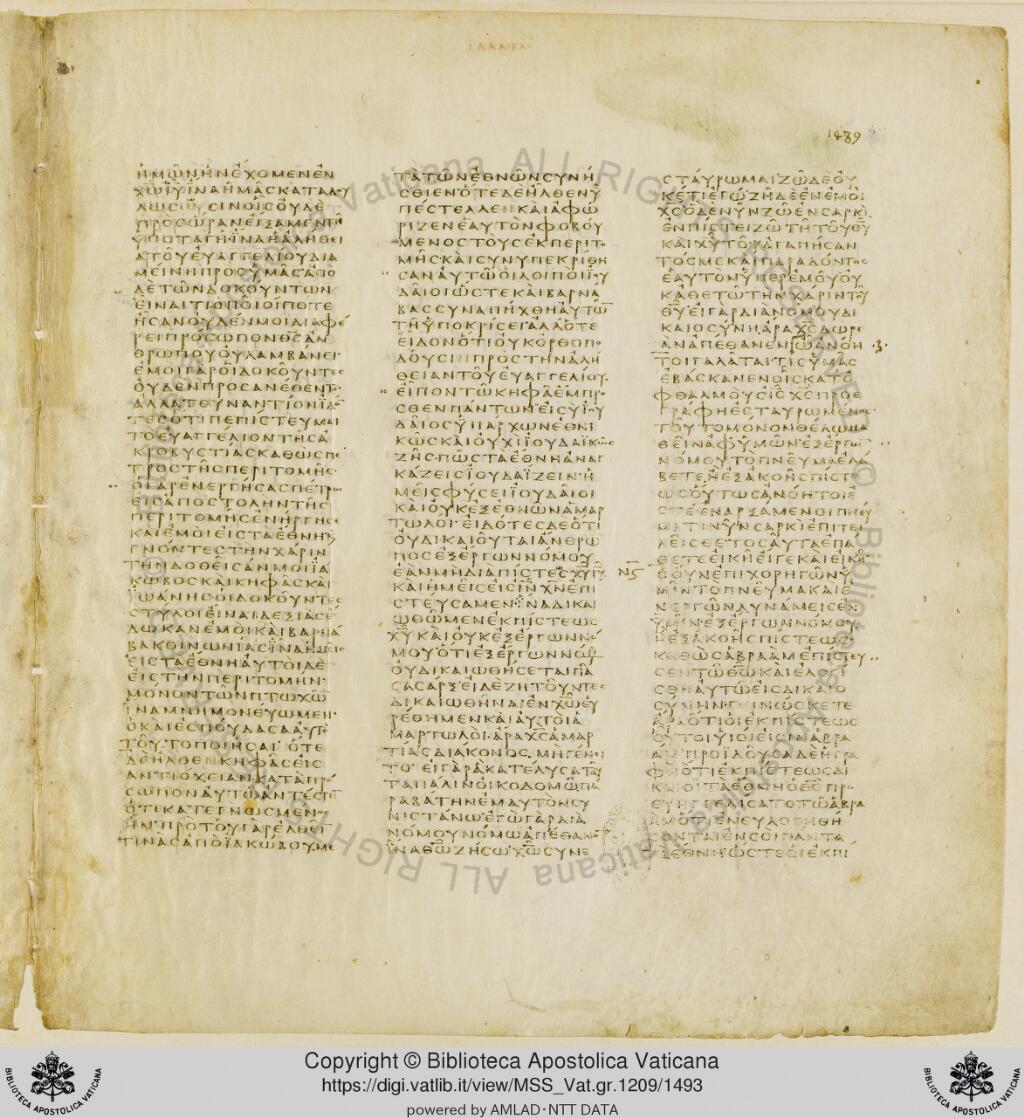 ΓΑΛΑΤΑΣ
1489
ΗΜΩΝΗΝΕΧΟΜΕΝΕΝ
ΧΩΙΥΙΝΑΗΜΑΣΚΑΤΑΔΟΥ
ΛΩΣΟΥΣΙΝΟΙΣΟΥΔΕ
ΠΡΟΣΩΡΑΝΕΙΞΑΜΕΝΤΗ
ΥΠΟΤΑΓΗΙΝΑΗΑΛΗΘΕΙ
ΑΤΟΥΕΥΑΓΓΕΛΙΟΥΔΙΑ
ΜΕΙΝΗΠΡΟΣΥΜΑΣΑΠΟ
ΔΕΤΩΝΔΟΚΟΥΝΤΩΝ
ΕΙΝΑΙΤΙΟΠΟΙΟΙΠΟΤΕ
ΗΣΑΝΟΥΔΕΝΜΟΙΔΙΑΦΕ
ΡΕΙΠΡΟΣΩΠΟΝΘΣΑΝ
ΘΡΩΠΟΥΟΥΛΑΜΒΑΝΕΙ
ΕΜΟΙΓΑΡΟΙΔΟΚΟΥΝΤΕΣ
ΟΥΔΕΝΠΡΟΣΑΝΕΘΕΝΤΟ
ΑΛΛΑΤΟΥΝΑΝΤΙΟΝΙΔΟ
ΤΕΣΟΤΙΠΕΠΙΣΤΕΥΜΑΙ
ΤΟΕΥΑΓΓΕΛΙΟΝΤΗΣΑ
ΚΡΟΒΥΣΤΙΑΣΚΑΘΩΣΠΕ
ΤΡΟΣΤΗΣΠΕΡΙΤΟΜΗΣ
ΟΓΑΡΕΝΕΡΓΗΣΑΣΠΕΤΡΩ
ΕΙΣΑΠΟΣΤΟΛΗΝΤΗΣ
ΠΕΡΙΤΟΜΗΣΕΝΗΡΓΗΣΕ
ΚΑΙΕΜΟΙΕΙΣΤΑΕΘΝΗΚ
ΓΝΟΝΤΕΣΤΗΝΧΑΡΙΝ
ΤΗΝΔΟΘΕΙΣΑΝΜΟΙΙΑ
ΚΩΒΟΣΚΑΙΚΗΦΑΣΚΑΙ
ΙΩΑΝΗΣΟΙΔΟΚΟΥΝΤΕΣ
ΣΤΥΛΟΙΕΙΝΑΙΔΕΞΙΑΣΕ
ΔΩΚΑΝΕΜΟΙΚΑΙΒΑΡΝΑ
ΒΑΚΟΙΝΩΝΙΑΣΙΝΑΗΜΕΙΣ
ΕΙΣΤΑΕΘΝΗΑΥΤΟΙΔΕ
ΕΙΣΤΗΝΠΕΡΙΤΟΜΗΝ
ΜΟΝΟΝΤΩΝΠΤΩΧΩ
ΙΝΑΜΝΗΜΟΝΕΥΩΜΕΝ
ΟΚΑΙΕΣΠΟΥΔΑΣΑΑΥΤΟ
ΤΟΥΤΟΠΟΙΗΣΑΙ ΟΤΕ
ΔΕΗΛΘΕΝΚΗΦΑΣΕΙΣ
ΑΝΤΙΟΧΕΙΑΝΚΑΤΑΠΡΟ
ΣΩΠΟΝΑΥΤΩΑΝΤΕΣΤΗ
ΟΤΙΚΑΤΕΓΝΩΣΜΕΝΟΣ
ΗΝΠΡΟΤΟΥΓΑΡΕΛΘΕΙ
ΤΙΝΑΣΑΠΟΙΑΚΩΒΟΥΜΕ
ΤΑΤΩΝΕΘΝΩΝΣΥΝΗ
ΣΘΙΕΝΟΤΕΔΕΗΛΘΕΝΥ
ΠΕΣΤΕΛΛΕΝΚΑΙΑΦΩ
ΡΙΖΕΝΕΑΥΤΟΝΦΟΒΟΥ
ΜΕΝΟΣΤΟΥΣΕΚΠΕΡΙΤΟ
ΜΗΣΚΑΙΣΥΝΥΠΕΚΡΙΘΗ
ΣΑΝΑΥΤΩΟΙΛΟΙΠΟΙΙΟΥ
ΔΑΙΟΙΩΣΤΕΚΑΙΒΑΡΝΑ
ΒΑΣΣΥΝΑΠΗΧΘΗΑΥΤΩ
ΤΗΥΠΟΚΡΙΣΕΙΑΛΛΟΤΕ
ΕΙΔΟΝΟΤΙΟΥΚΟΡΘΟΠΟ
ΔΟΥΣΙΝΠΡΟΣΤΗΝΑΛΗ
ΘΕΙΑΝΤΟΥΕΥΑΓΓΕΛΙΟΥ
ΕΙΠΟΝΤΩΚΗΦΑΕΜΠΡΟ
ΣΘΕΝΠΑΝΤΩΝΕΙΣΥΙΟΥ
ΔΑΙΟΣΥΠΑΡΧΩΝΕΘΝΙ
ΚΩΣΚΑΙΟΥΧΙΙΟΥΔΑΙΚΩΣ
ΖΗΣΠΩΣΤΑΕΘΝΗΑΝΑΓ
ΚΑΖΕΙΣΙΟΥΔΑΙΖΕΙΝΗ
ΜΕΙΣΦΥΣΕΙΙΟΥΔΑΙΟΙ
ΚΑΙΟΥΚΕΞΕΘΝΩΝΑΜΑΡ
ΤΩΛΟΙΕΙΔΟΤΕΣΔΕΟΤΙ
ΟΥΔΙΚΑΙΟΥΤΑΙΑΝΘΡΩ
ΠΟΣΕΞΕΡΓΩΝΝΟΜΟΥ
ΕΑΝΜΗΔΙΑΠΙΣΤΕΩΣΧΥΙΥ
ΚΑΙΗΜΕΙΣΕΙΣΙΝΧΝΕΠΙ
ΣΤΕΥΣΑΜΕΝΙΝΑΔΙΚΑΙ
ΩΘΩΜΕΝΕΚΠΙΣΤΕΩΣ
ΧΥΚΑΙΟΥΚΕΞΕΡΓΩΝΝΟ
ΜΟΥΟΤΙΕΞΕΡΓΩΝΝΟΜΟΥ
ΟΥΔΙΚΑΙΩΘΗΣΕΤΑΙΠΑ
ΣΑΣΑΡΞΕΙΔΕΖΗΤΟΥΝΤΕΣ
ΔΙΚΑΙΩΘΗΝΑΙΕΝΧΩΕΥ
ΡΕΘΗΜΕΝΚΑΙΑΥΤΟΙΑ
ΜΑΡΤΩΛΟΙΑΡΑΧΣΑΜΑΡ
ΤΙΑΣΔΙΑΚΟΝΟΣΜΗΓΕΝΟΙ
ΤΟΕΙΓΑΡΑΚΑΤΕΛΥΣΑΤΑΥ
ΤΑΠΑΛΙΝΟΙΚΟΔΟΜΩΠΑ
ΡΑΒΑΤΗΝΕΜΑΥΤΟΝΣΥ
ΝΙΣΤΑΝΩΕΓΩΓΑΡΔΙΑ
ΝΟΜΟΥΝΟΜΩΑΠΕΘΑΝΟ
ΙΝΑΘΩΖΗΣΩΧΩΣΥΝΕ
ΣΤΑΥΡΩΜΑΙΖΩΔΕΟΥ
ΚΕΤΙΕΓΩΖΗΔΕΕΝΕΜΟΙ
ΧΣΟΔΕΝΥΝΖΩΕΝΣΑΡΚΙ
ΕΝΠΙΣΤΕΙΖΩΤΗΤΟΥΘΥ
ΚΑΙΧΥΤΟΥΑΓΑΠΗΣΑΝ
ΤΟΣΜΕΚΑΙΠΑΡΑΔΟΝΤΟΣ
ΕΑΥΤΟΝΥΠΕΡΕΜΟΥΟΥ
ΚΑΘΕΤΩΤΗΝΧΑΡΙΝΤΟΥ
ΘΥΕΙΓΑΡΔΙΑΝΟΜΟΥΔΙ
ΚΑΙΟΣΥΝΗΑΡΑΧΣΔΩΡΕ
ΑΝΑΠΕΘΑΝΕΝΩΑΝΟΗ
ΤΟΙΓΑΛΑΤΑΙΤΙΣΥΜΑΣ
ΕΒΑΣΚΑΝΕΝΟΙΣΚΑΤΟ
ΦΘΑΛΜΟΥΣΙΣΧΣΠΡΟΕ
ΓΡΑΦΗΕΣΤΑΥΡΩΜΕΝΟΣ
ΤΟΥΤΟΜΟΝΟΝΘΕΛΩΜΑ
ΘΕΙΝΑΦΥΜΩΝΕΞΕΡΓΩΝ
ΝΟΜΟΥΤΟΠΝΕΥΜΑΕΛΑ
ΒΕΤΕΗΕΞΑΚΟΗΣΠΙΣΤΕ
ΩΣΟΥΤΩΣΑΝΟΗΤΟΙΕ
ΣΤΕΕΝΑΡΞΑΜΕΝΟΙΠΝΕΥ
ΜΑΤΙΝΥΝΣΑΡΚΙΕΠΙΤΕΛ
ΕΙΣΘΕΤΟΣΑΥΤΑΕΠΑ
ΘΕΤΕΕΙΚΗΕΙΓΕΚΑΙΕΙΚΗ
ΝϚ
ΟΟΥΝΕΠΙΧΟΡΗΓΩΝΥ
ΜΙΝΤΟΠΝΕΥΜΑΚΑΙΕ
ΝΕΡΓΩΝΔΥΝΑΜΕΙΣΕΝ
ΥΜΙΝΕΞΕΡΓΩΝΝΟΜΟΥ
ΗΕΞΑΚΟΗΣΠΙΣΤΕΩΣ
ΚΑΘΩΣΑΒΡΑΑΜΕΠΙΣΤΕΥ
ΣΕΝΤΩΘΩΚΑΙΕΛΟΓΙ
ΣΘΗΑΥΤΩΕΙΣΔΙΚΑΙΟ
ΣΥΝΗΝΓΕΙΝΩΣΚΕΤΕ
ΑΡΑΟΤΙΟΙΕΚΠΙΣΤΕΩΣ
ΟΥΤΟΙΥΙΟΙΕΙΣΙΝΑΒΡΑ
ΑΜΠΡΟΙΔΟΥΣΑΔΕΗΓΡΑ
ΦΗΟΤΙΕΚΠΙΣΤΕΩΣΔΙ
ΚΑΙΟΙΤΑΕΘΝΗΟΘΣΠΡΟ
ΕΥΗΓΓΕΛΙΣΑΤΟΤΩΑΒΡΑ
ΑΜΟΤΙΕΝΕΥΛΟΓΗΘΗ
ΣΟΝΤΑΙΕΝΣΟΙΠΑΝΤΑ
ΤΑΕΘΝΗΩΣΤΕΟΙΕΚΠΙ
Copyright © Biblioteca Apostolica Vaticana
https://digi.vatlib.it/view/MSS_Vat.gr.1209/1493
powered by AMLAD·NTT DATA
BIBLIOTECA APOSTOLICA VATICANA
BIBLIOTECA APOSTOLICA VATICANA